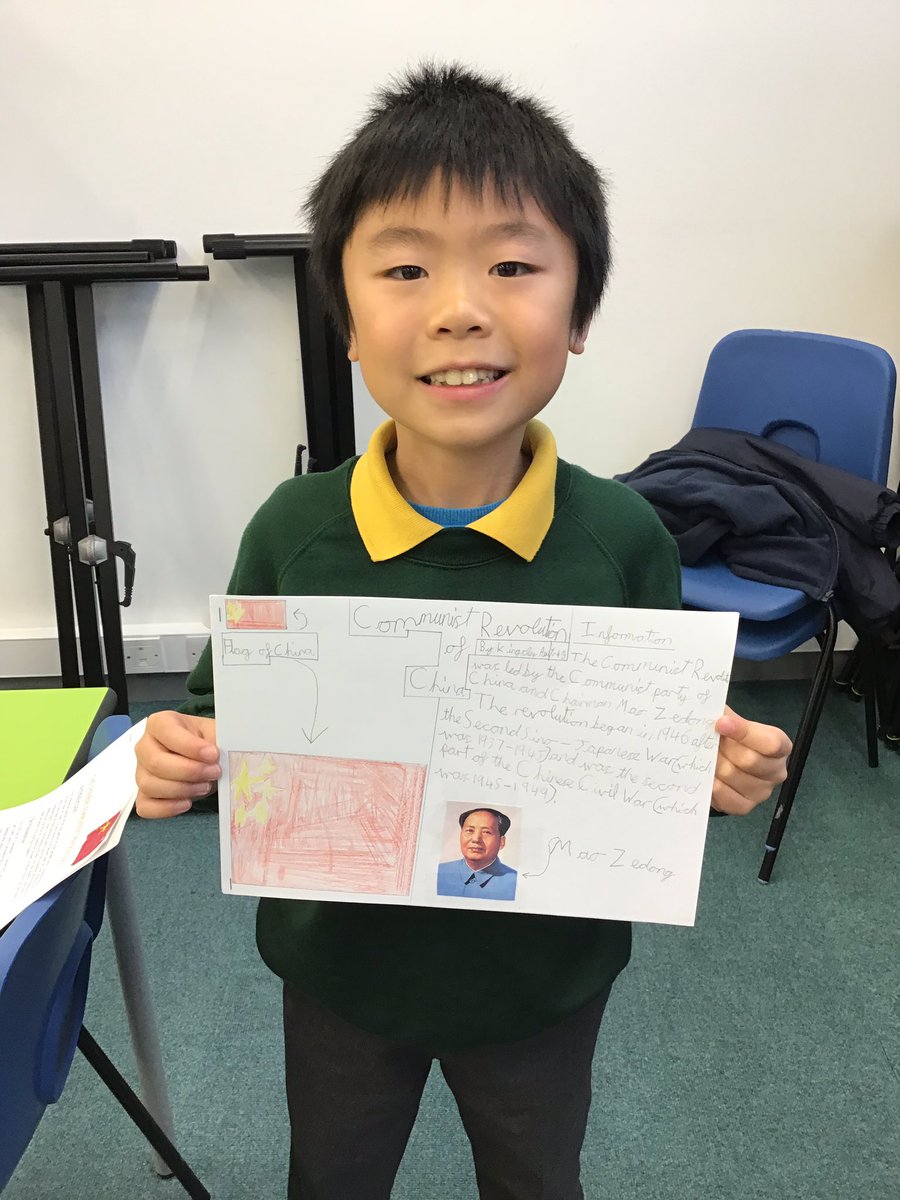 Flag of China
Communist
Revolution
of
China
By: K
Information
The Communist Revolut
was led by the Communist party of
China and Chairman Mao Zedong
The revolution began in 1946 after
the Second Sino-Japanese War (which
was 1937-1945) and was the second
part of the Chinese Civil War (which
was 1945-1949).
Mao Zedong